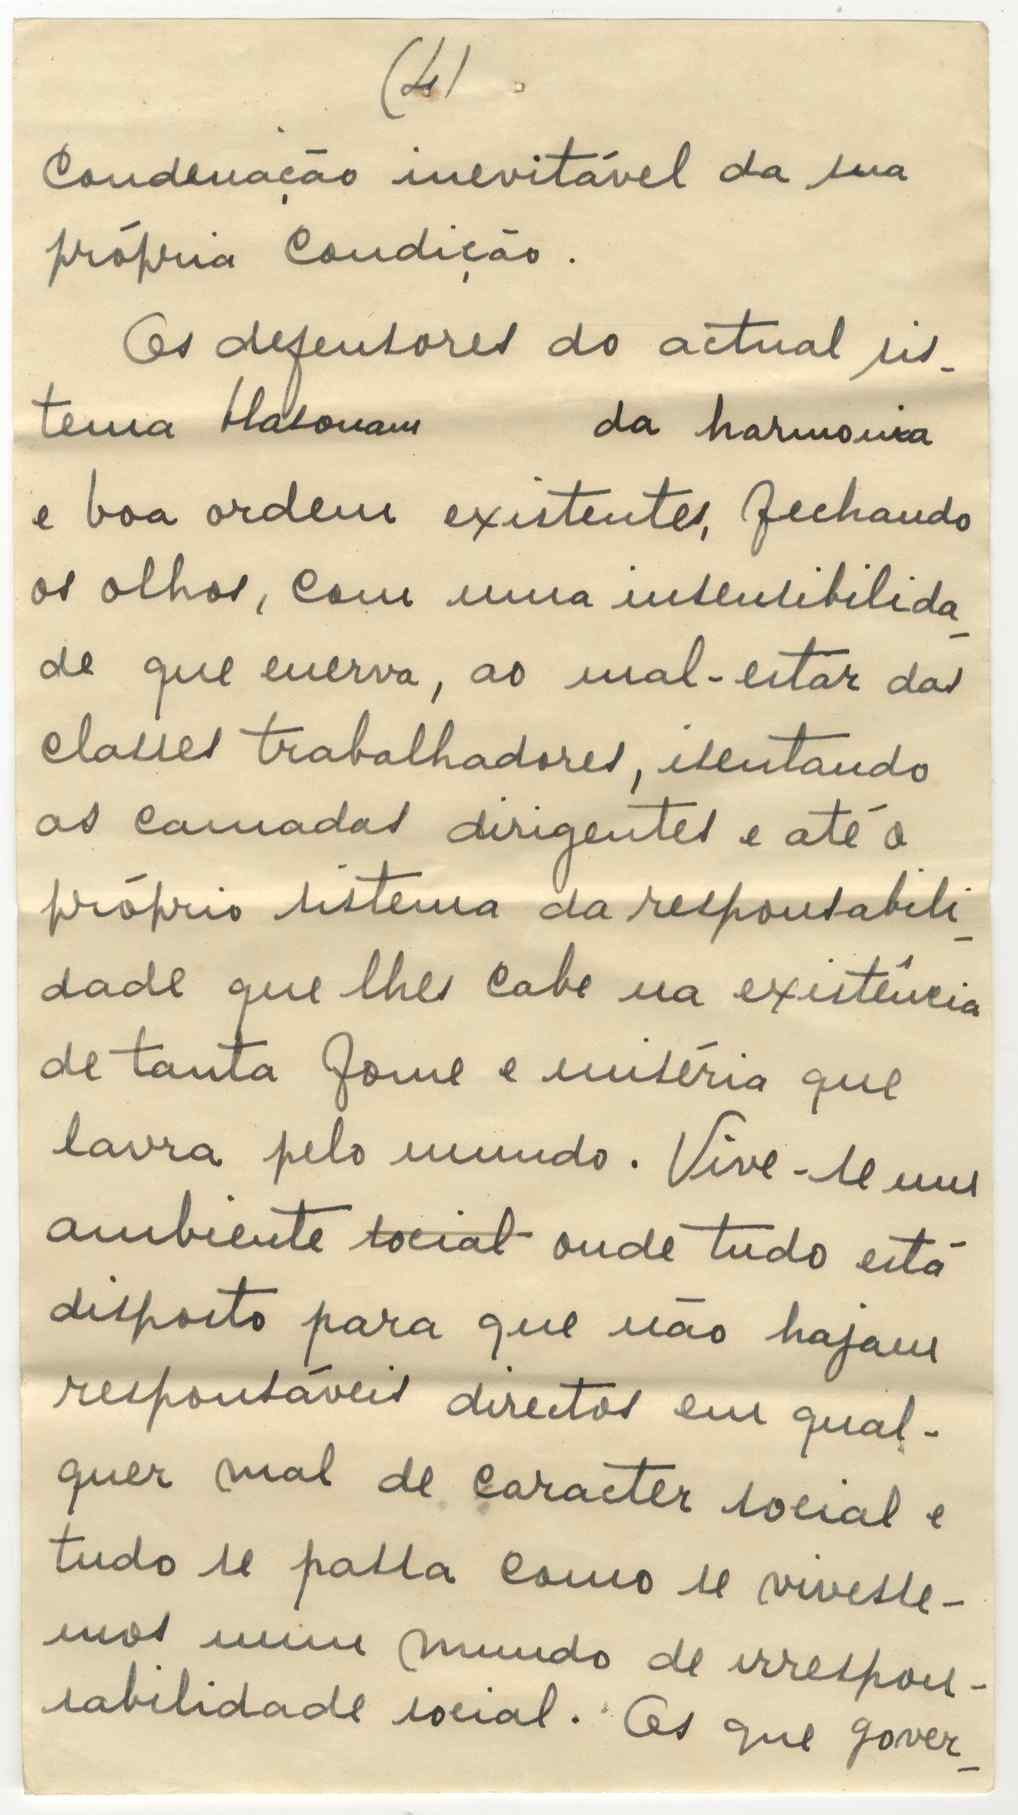 (4)
condenação inevitável da sua
própria condição.
Os defensores do actual sis-
tema blasonam da harmonia
e boa ordem existentes, fechando
os olhos, com uma insensibilida-
de que enerva, ao mal-estar das
classes trabalhadores, isentando
as camadas dirigentes e até o
próprio sistema da responsabili-
dade que lhes cabe na existência
de tanta fome e miséria que
lavra pelo mundo. Vive-se num
ambiente social onde tudo está
disposto para que não hajam
responsáveis directos em qual-
quer mal de caracter social e
tudo se passa como se vivesse-
mos num mundo de irrespon-
sabilidade social. Os que gover-